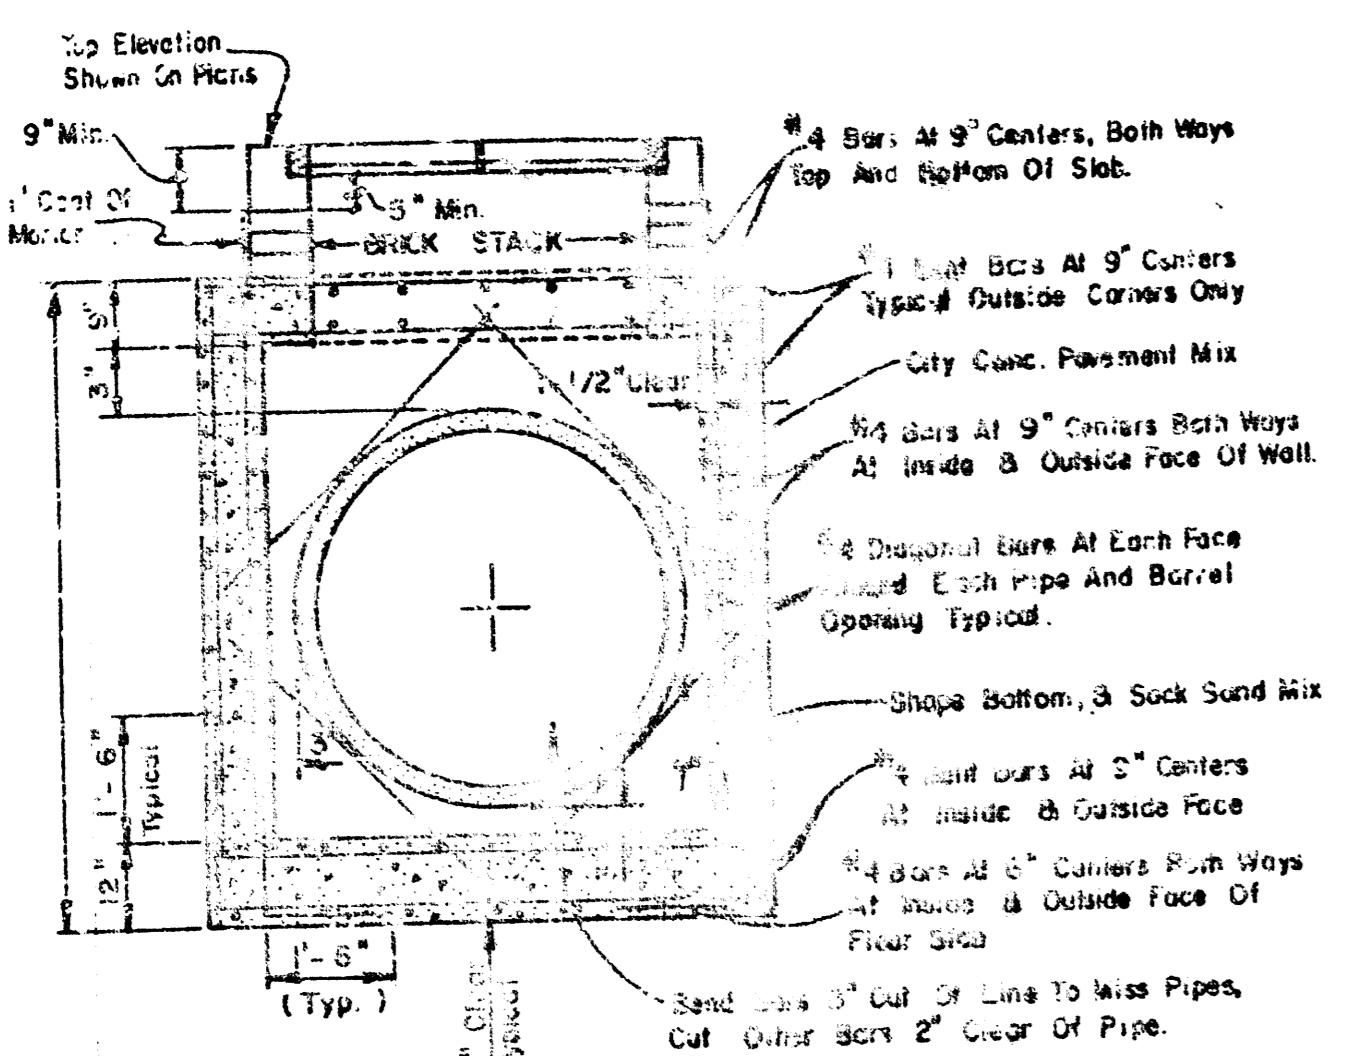 Top Elevation
Shown On Plans
9" Min.
1" Coat Of
Mortar
5" Min.
BRICK STACK
9"
3"
1/2" Clear
3"
1'-6"
Typical
12"
1'-6"
(Typ.)
#4 Bars At 9" Centers, Both Ways
Top And Bottom Of Slab.
Bent Bars At 9" Centers
Typical Outside Corners Only
City Conc. Pavement Mix
#4 Bars At 9" Centers Both Ways
At Inside & Outside Face Of Wall.
#4 Diagonal Bars At Each Face
Each Pipe And Barrel
Opening Typical.
Shape Bottom, & Sack Sand Mix
#4 Bent Bars At 9" Centers
At Inside & Outside Face
#4 Bars At 6" Centers Both Ways
At Inside & Outside Face Of
Floor Slab
Bend Bars 3" Out Of Line To Miss Pipes,
Cut Other Bars 2" Clear Of Pipe.